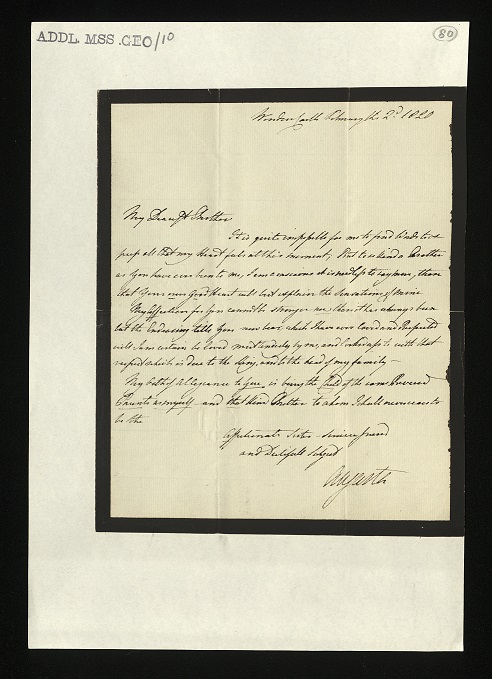 ADDL. MSS. GEO/10
80
Windsor Castle February the 2d 1820
My Dearest Brother
It is quite impossible for me to find words to ex
press all that my Heart feels at this moment, But to so kind a Brother
as You have ever been to me, I am conscious it is needless to say more, than
that Your own Good Heart will best explain the Sensations of mine
My affection for You cannot be stronger now than it has always been
but the Endearing title You now bear which I have ever loved and Respected
will I am certain be loved most tenderly by me, and with that
respect which is due to the King, and to the head of my family —
My both of Allegiance to You is being the Child of the same Revered
Parents as myself and that dear Brother to whom I shall never cease to
be the
Affectionate Sister – sincere friend
and Dutifull Subject
Augusta